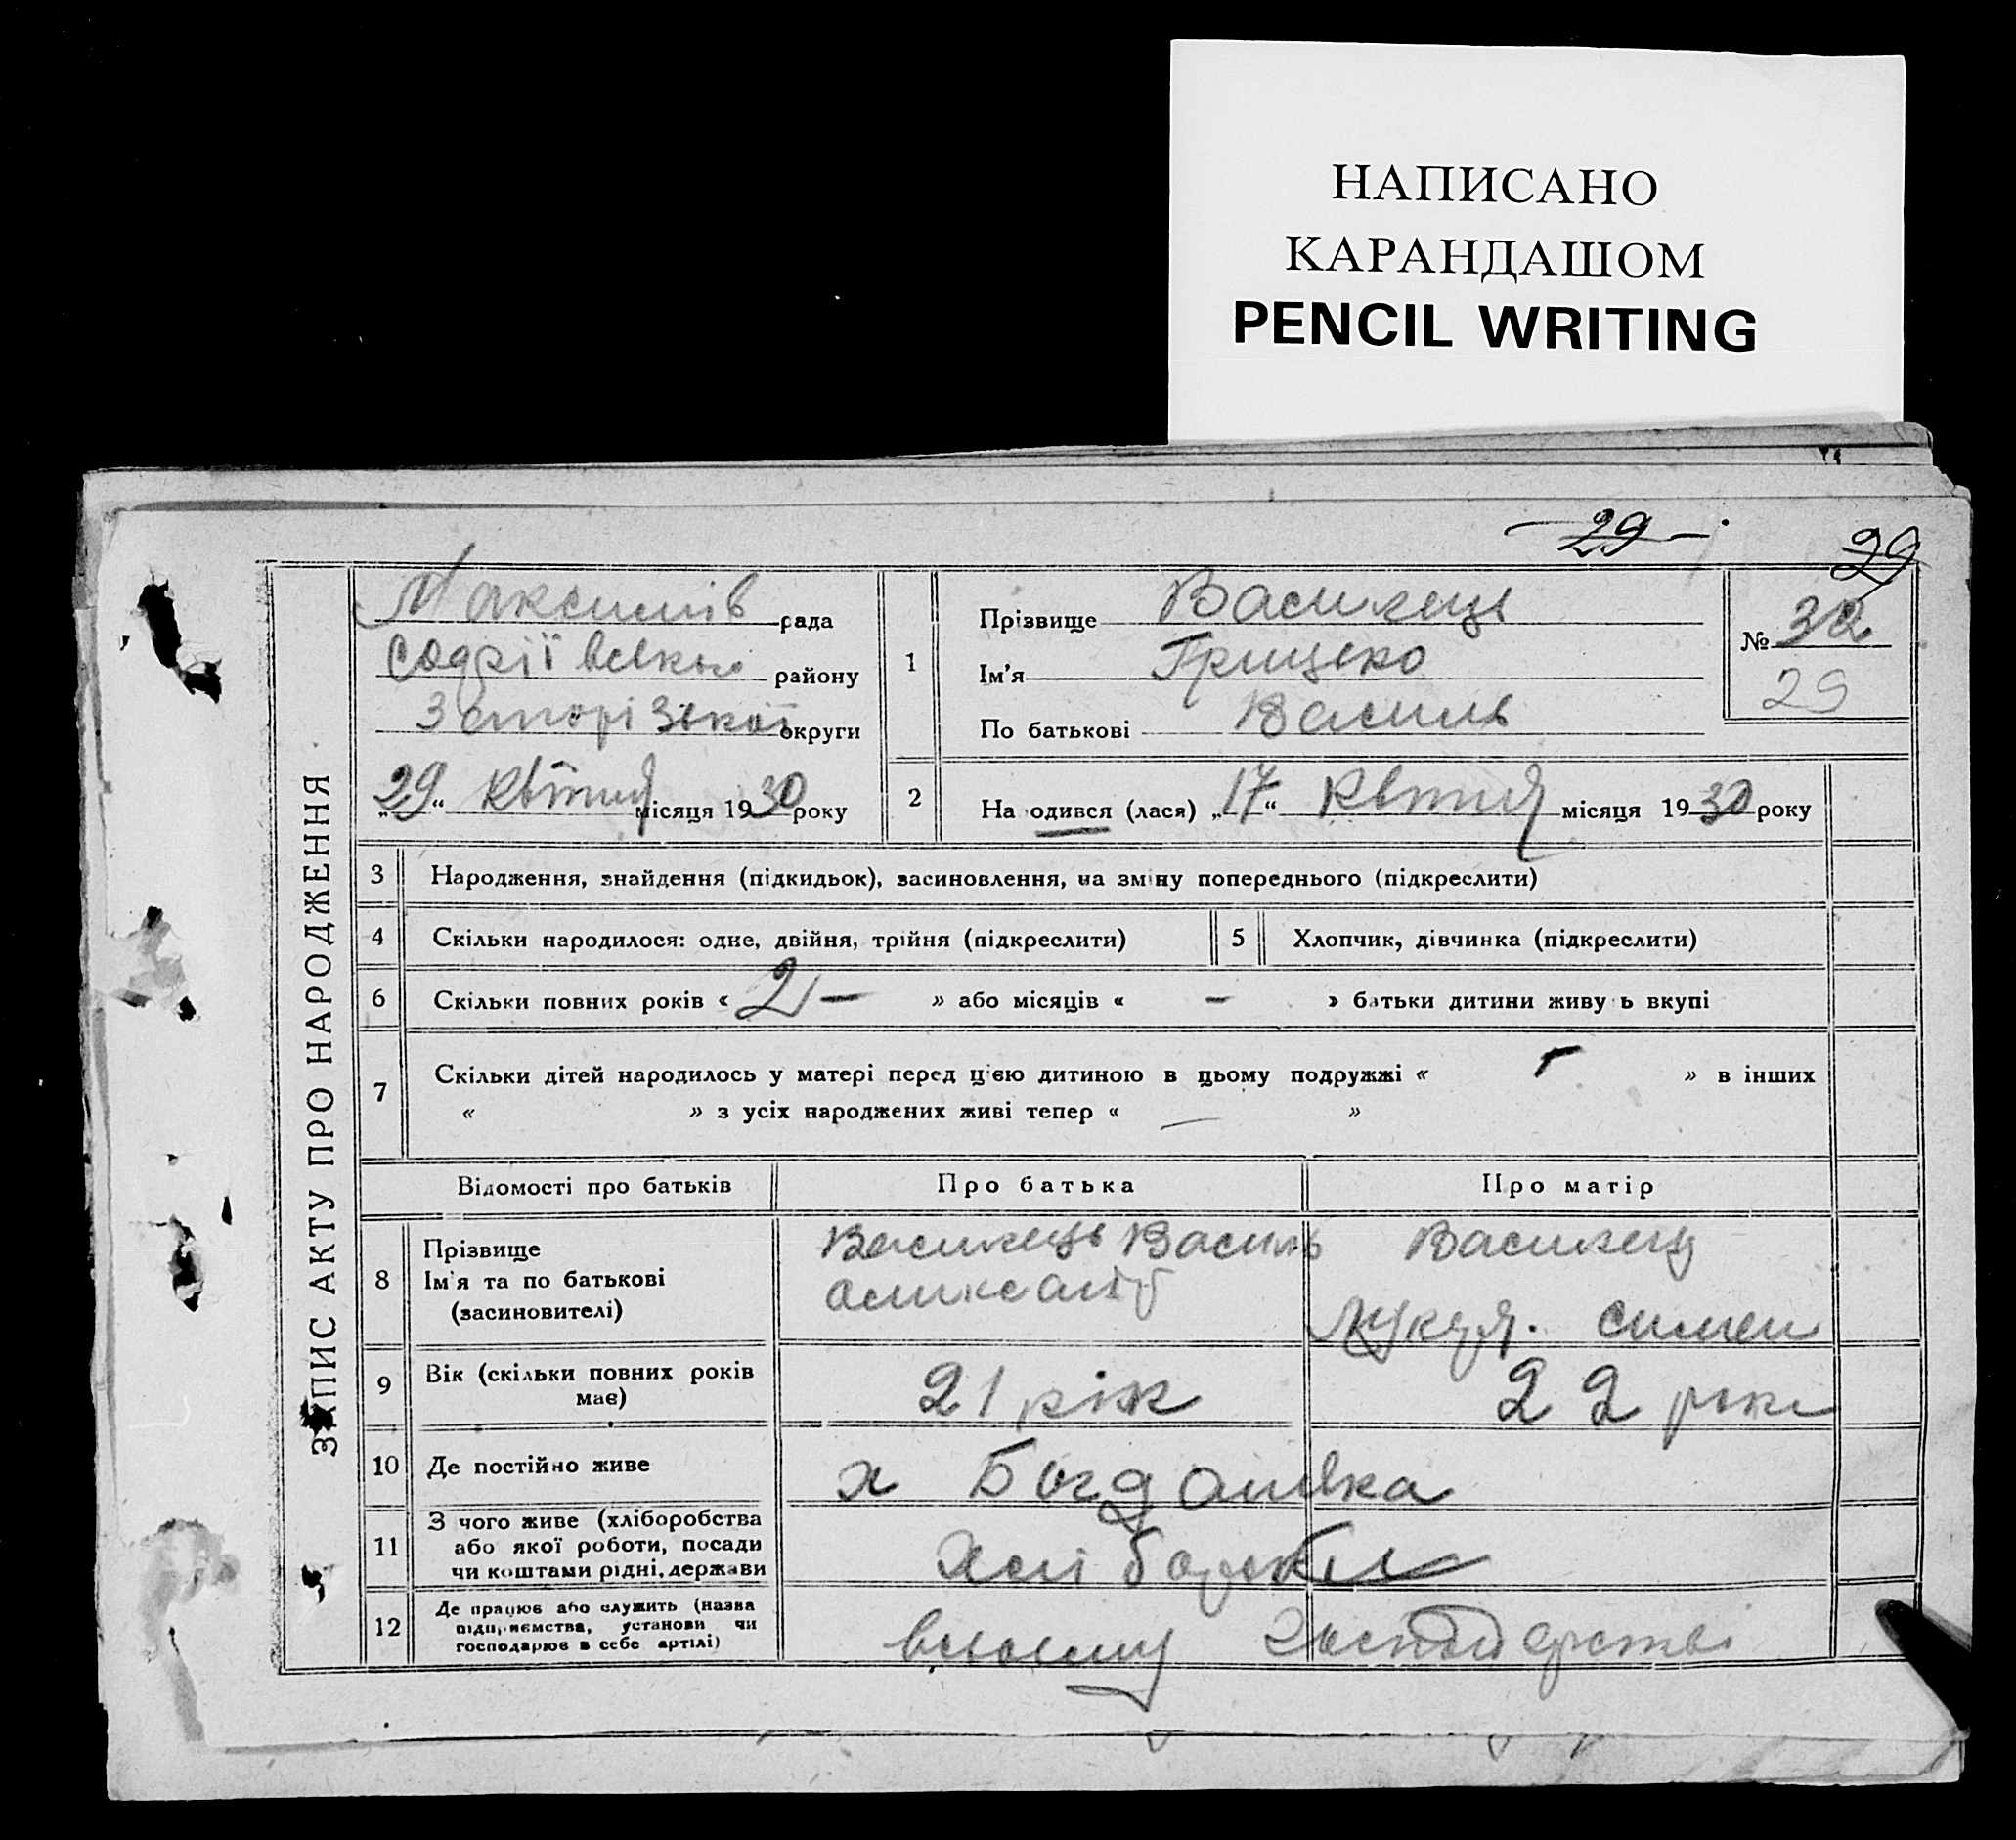 НАПИСАНО
КАРАНДАШОМ
PENCIL WRITING
29
29
ЗАПИС АКТУ ПРО НАРОДЖЕННЯ
Максимів рада
району
округи
„29“ квітня місяця 1930 року
1
Прізвище Василець
Ім'я Грицько
По батькові Василь
№ 32
29
2
На одився (лася) „17“ квітня місяця 1930 року
3 Народження, знайдення (підкидьок), засиновлення, на зміну попереднього (підкреслити)
4 Скільки народилося: одне, двійня, трійня (підкреслити) 5 Хлопчик, дівчинка (підкреслити)
6 Скільки повних років « 2 — » або місяців « — » батьки дитини живу ь вкупі
7 Скільки дітей народилось у матері перед цією дитиною в цьому подружжі « » в інших
« » з усіх народжених живі тепер « — »
Відомості про батьків Про батька Про матір
8 Прізвище
Ім'я та по батькові
(засиновителі)
Василець Василь
Василець
9 Вік (скільки повних років
має)
21 рік
22 роки
10 Де постійно живе х Богданівка
11 З чого живе (хліборобства
або якої роботи, посади
чи коштами рідні, держави
12 Де працює або служить (назва
підприємства, установи чи
господарює в себе артілі)
всвоєму господарстві